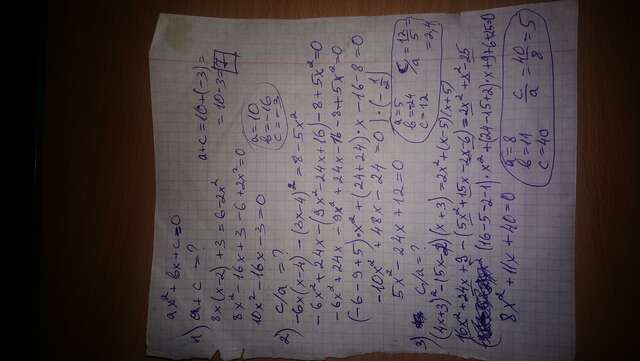 ax² + bx + c = 0
1) a + c = ?
8x(x-2) + 3 = 6 - 2x²
8x² - 16x + 3 - 6 + 2x² = 0
10x² - 16x - 3 = 0
a = 10
b = -16
c = -3
a + c = 10 + (-3) =
= 10 - 3 = 7
2) c/a = ?
-6x(x-4) - (3x-4)² = 8 - 5x²
-6x² + 24x - (9x² - 24x + 16) - 8 + 5x² = 0
-6x² + 24x - 9x² + 24x - 16 - 8 + 5x² = 0
(-6-9+5)·x² + (24+24)·x - 16 - 8 = 0
-10x² + 48x - 24 = 0 | ·(-1/2)
5x² - 24x + 12 = 0
a = 5
b = -24
c = 12
c/a = 12/5 = 2,4
3) c/a = ?
(4x+3)² - (5x-2)(x+3) = 2x² + (x-5)(x+5)
16x² + 24x + 9 - (5x² + 15x - 2x - 6) = 2x² + x² - 25
(16-5-2-1)·x² + (24-15+2)·x + 9 + 6 + 25 = 0
8x² + 11x + 40 = 0
a = 8
b = 11
c = 40
c/a = 40/8 = 5